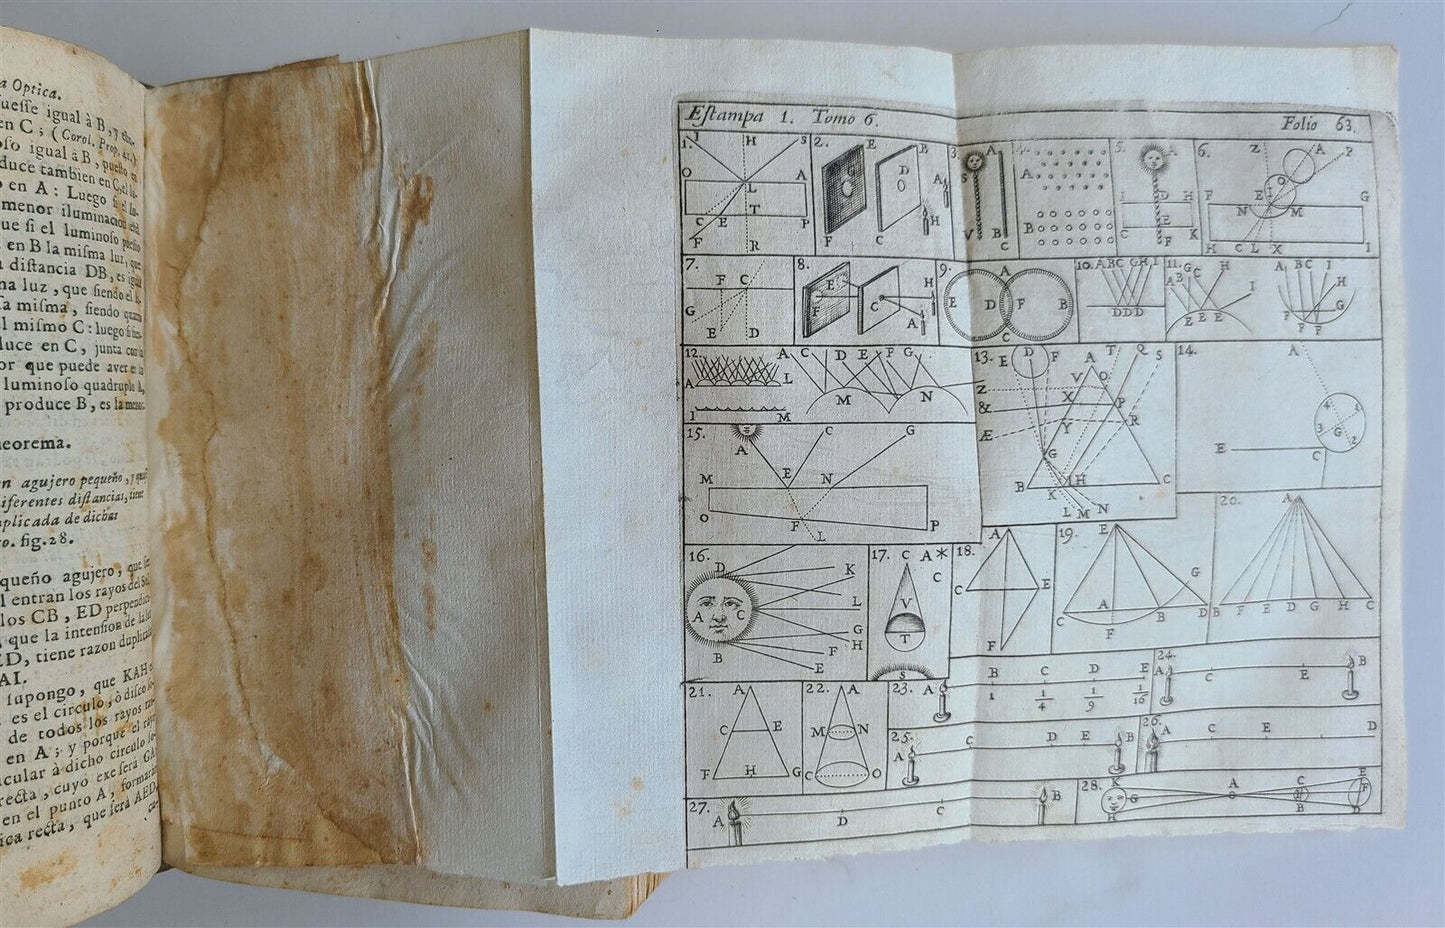 a Optica.
uesse igual à B, y
en C; (Corol. Prop. 21.)
oso igual à B, puesto en
duce tambien en C,
o en A: Luego si el
menor iluminacion
que si el luminoso puesto
en B la misma luz, que
a distancia DB, es igual
na luz, que siendo el
sa misma, siendo
l mismo C: luego si
duce en C, junta con
or que puede aver
luminoso quadruplo
produce B, es la menor.
eorema.
n agujero pequeño, y
iferentes distancias, tiene
uplicada de dichas
o. fig. 28.
queño agujero, que
l entran los rayos del Sol,
los CB, ED
, que la intension de la
ED, tiene razon duplicada
AI.
supongo, que KAH
es el circulo, ò disco
de todos los rayos
en A; y porque el rayo
cular à dicho circulo
recta, cuyo exe serà GA;
en el punto A, formaràn
ica recta, que serà AED,
ca-
Estampa 1. Tomo 6. Folio 63.
1. I H S O L A C E T P F R
2. E B D F C A H
3. A S V B C
4. A B
5. A I D H C E F K
6. Z A P F E I O G N M H C L X I
7. F C G E D
8. E H F C A
9. A E D F B C
10. A B C G H I D D D
11. A B G C H I E E E A B C I H G F F F
12. A L I M A C D E F G M N
13. E D F A T Q S V O Z X P & R Y Æ G B K I H C L M N
14. A E C G 4 1 3 2
15. A C G M E N O F P L
16. D K L A C G H B F E
17. C A C V T S
18. A C E F
19. E G C A B D F
20. A B F E D G H C
21. A C E F H G
22. A M N C O
23. A B C D E 1 1/4 1/9 1/16
24. A C E B
25. A C D E B
26. A C E D
27. A D C B
28. K G H A C H B E F D